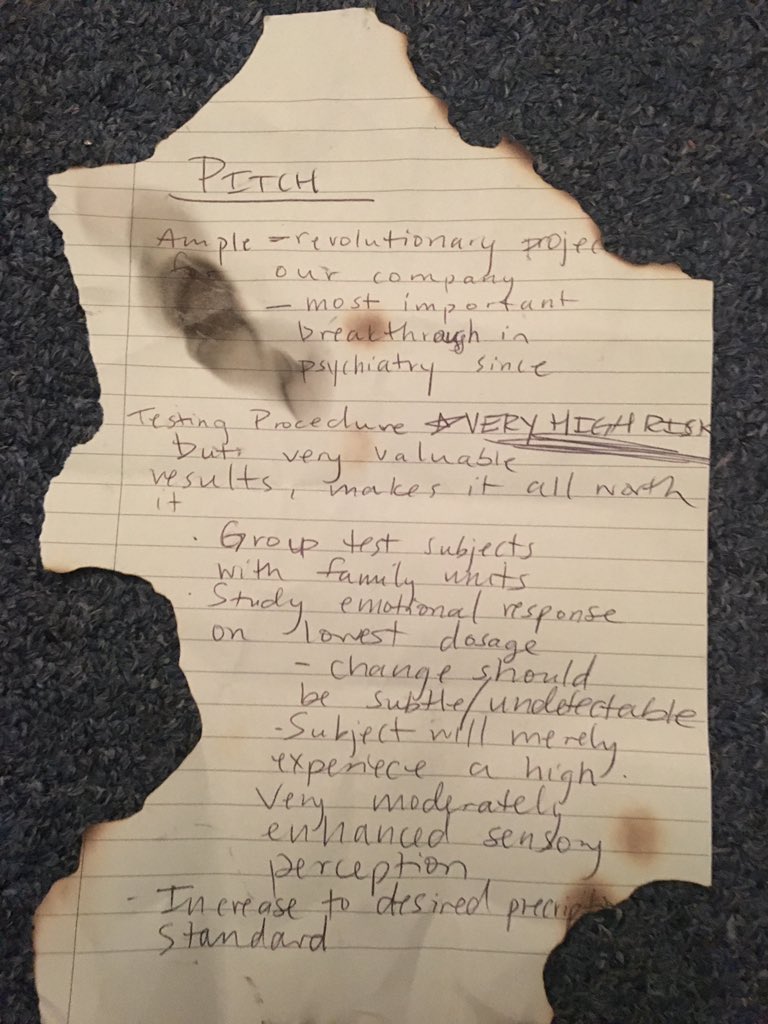 PITCH
Ample - revolutionary projec
our company
- most important
breakthrough in
psychiatry since
Testing Procedure ☆VERY HIGH RISK
but very valuable
results, makes it all worth
it
· Group test subjects
with family units
· Study emotional response
on lowest dosage
- change should
be subtle/undetectable
- Subject will merely
experiece a high.
Very moderately
enhanced sensory
perception
- Increase to desired precript
Standard